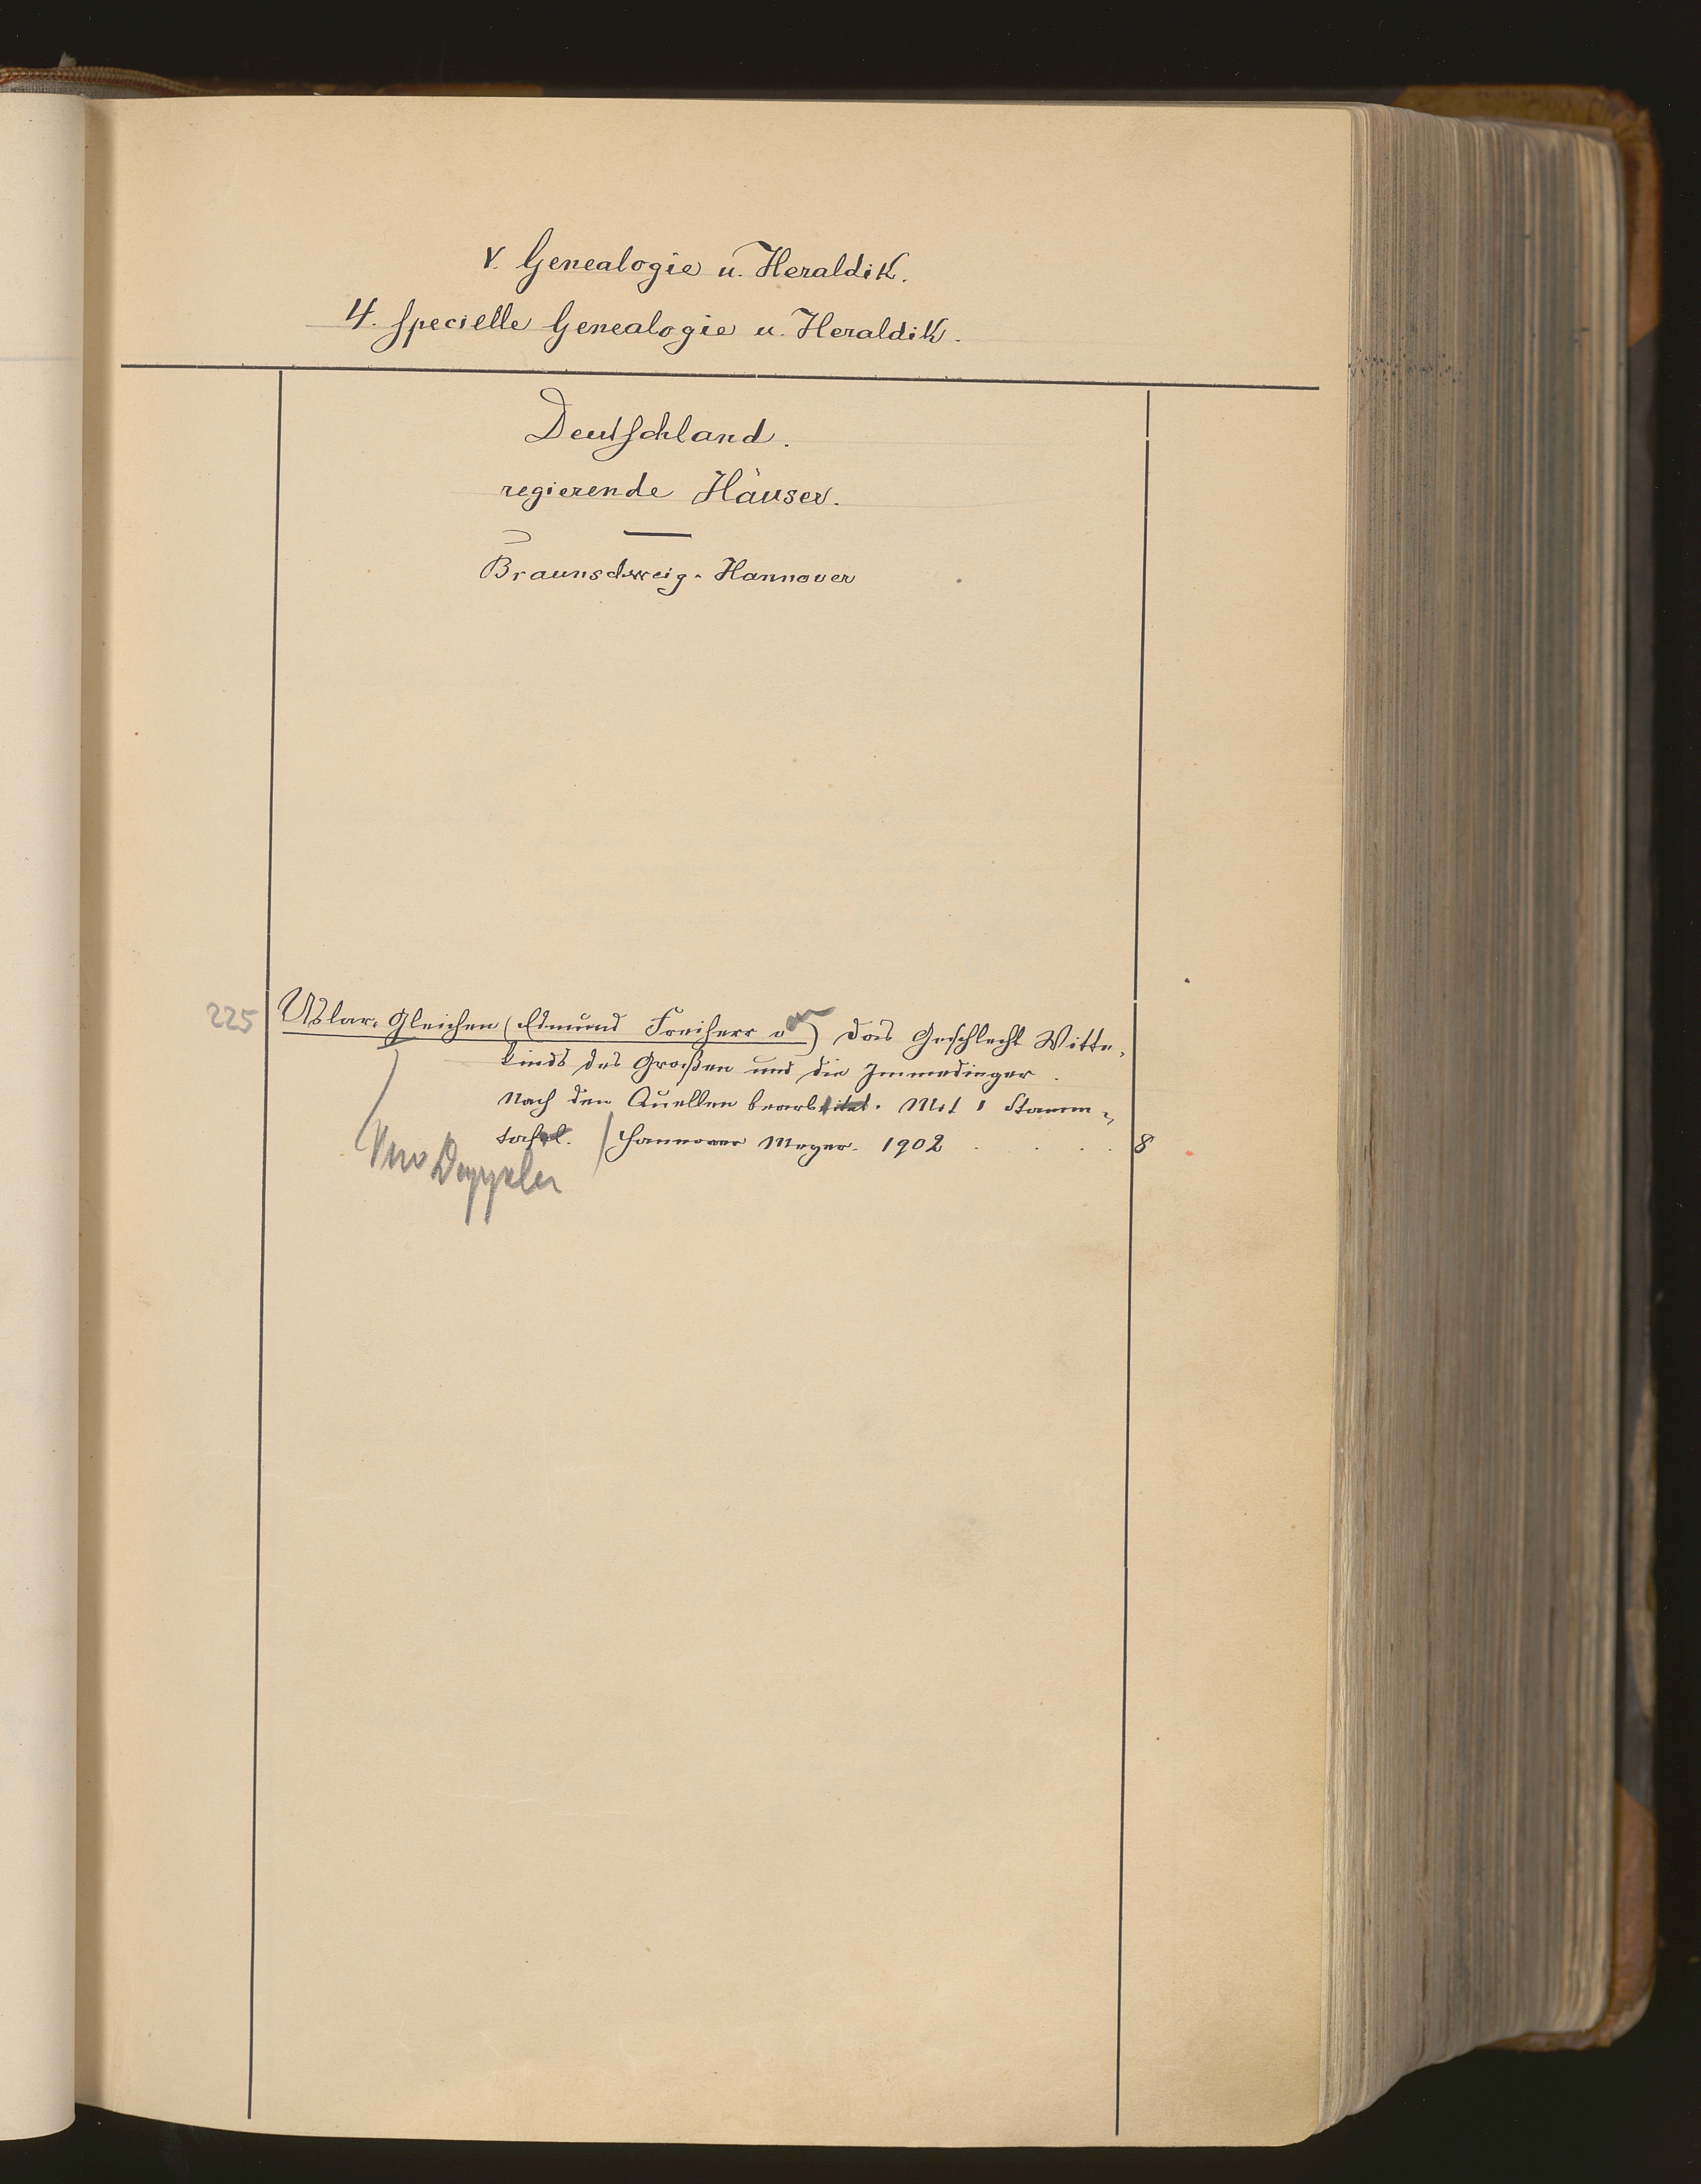 V. Genealogie u. Heraldik.
4. specielle Genealogie u. Heraldik.
Deutschland.
regierende Häuser.
Braunschweig-Hannover
225 Uslar-Gleichen (Edmund Freiherr v) Das Geschlecht Witte-
kinds des Großen und die Immedinger.
Nach den Quellen bearbeitet. Mit 1 Stamm-
tafel. / Hannover Meyer. 1902 . . . . 8
Doppeler